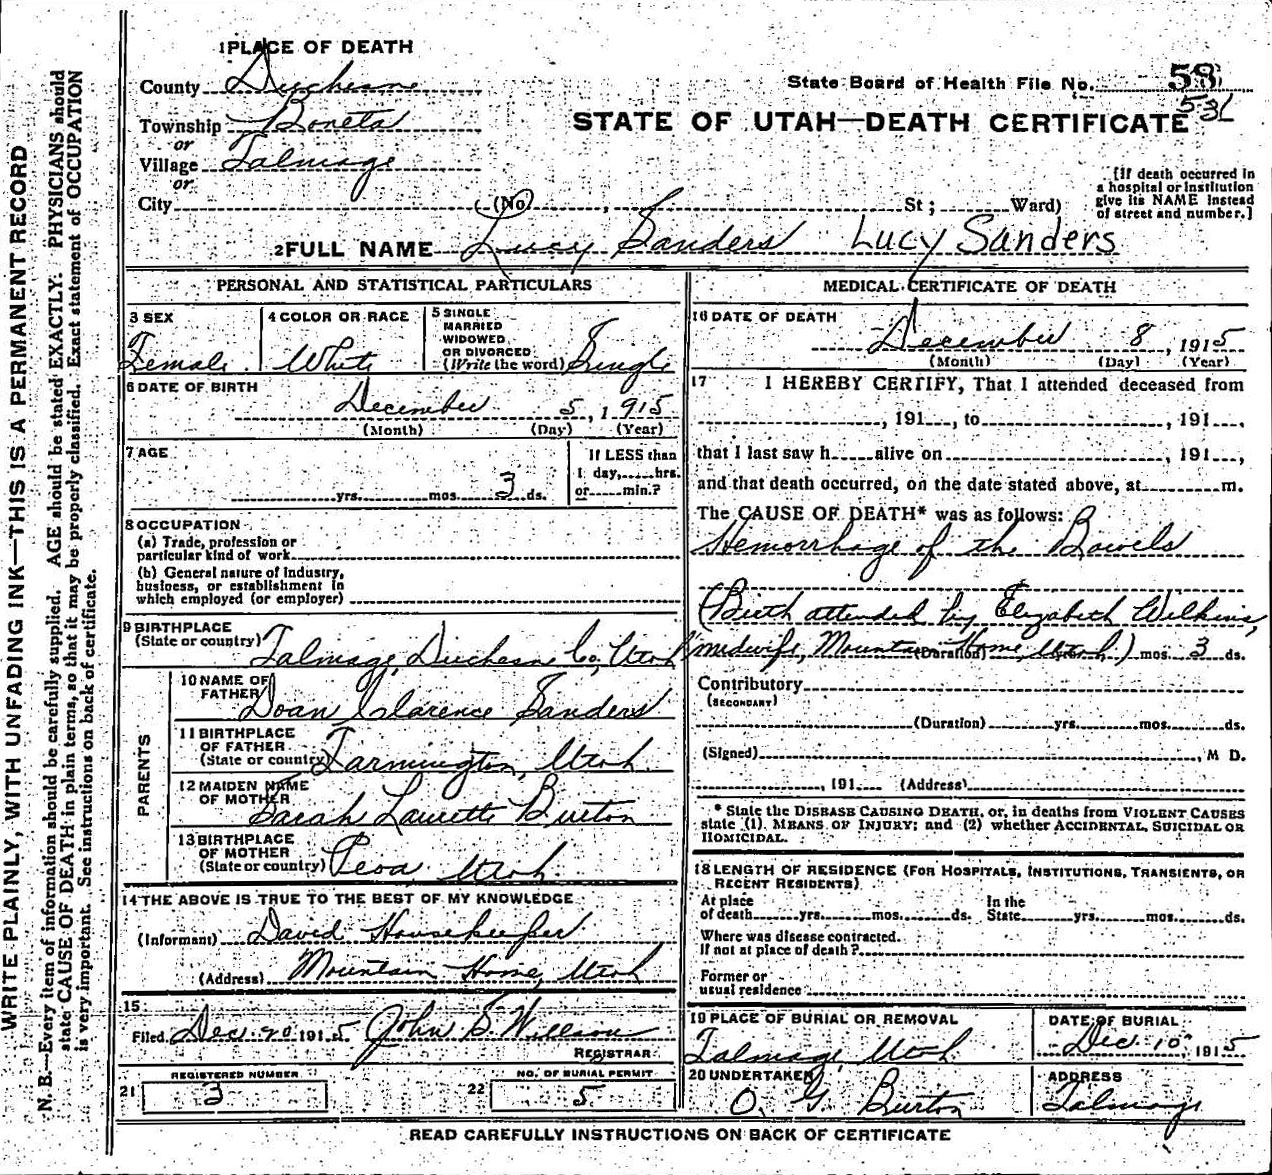 WRITE PLAINLY, WITH UNFADING INK—THIS IS A PERMANENT RECORD
N. B.—Every item of information should be carefully supplied. AGE should be stated EXACTLY. PHYSICIANS should
state CAUSE OF DEATH in plain terms, so that it may be properly classified. Exact statement of OCCUPATION
is very important. See instructions on back of certificate.
1 PLACE OF DEATH
County Duchesne
State Board of Health File No. 58
536
Township Boneta
or
STATE OF UTAH—DEATH CERTIFICATE
Village Talmage
or
City (No. , St; Ward)
[If death occurred in
a hospital or institution
give its NAME instead
of street and number.]
2 FULL NAME Lucy Sanders Lucy Sanders
PERSONAL AND STATISTICAL PARTICULARS
3 SEX
Female
4 COLOR OR RACE
White
5 SINGLE
MARRIED
WIDOWED
OR DIVORCED
(Write the word) Single
6 DATE OF BIRTH
December 5, 1915
(Month) (Day) (Year)
7 AGE
yrs. mos. 3 ds.
If LESS than
1 day, hrs.
or min.?
8 OCCUPATION
(a) Trade, profession or
particular kind of work
(b) General nature of industry,
business, or establishment in
which employed (or employer)
9 BIRTHPLACE
(State or country) Talmage, Duchesne Co, Utah
PARENTS
10 NAME OF
FATHER Doan Clarence Sanders
11 BIRTHPLACE
OF FATHER
(State or country) Farmington, Utah.
12 MAIDEN NAME
OF MOTHER Sarah Laurette Burton
13 BIRTHPLACE
OF MOTHER
(State or country) Peoa, Utah.
14 THE ABOVE IS TRUE TO THE BEST OF MY KNOWLEDGE
(Informant) David Housekeeper
(Address) Mountain Home, Utah
15
Filed Dec. 20 1915 John S. Willson
REGISTRAR
21 REGISTERED NUMBER
3
22 NO. OF BURIAL PERMIT
5
MEDICAL CERTIFICATE OF DEATH
16 DATE OF DEATH
December 8, 1915
(Month) (Day) (Year)
17 I HEREBY CERTIFY, That I attended deceased from
, 191 , to , 191 ,
that I last saw h alive on , 191 ,
and that death occurred, on the date stated above, at m.
The CAUSE OF DEATH* was as follows:
Hemorrhage of the Bowels
(Birth attended by Elizabeth Wilkins,
midwife, Mountain Home, Utah.) (Duration) yrs. mos. 3 ds.
Contributory
(SECONDARY)
(Duration) yrs. mos. ds.
(Signed) , M D.
, 191 (Address)
* State the DISEASE CAUSING DEATH, or, in deaths from VIOLENT CAUSES
state (1) MEANS OF INJURY; and (2) whether ACCIDENTAL, SUICIDAL OR
HOMICIDAL.
18 LENGTH OF RESIDENCE (FOR HOSPITALS, INSTITUTIONS, TRANSIENTS, OR
RECENT RESIDENTS)
At place
of death yrs. mos. ds.
In the
State yrs. mos. ds.
Where was disease contracted.
If not at place of death?
Former or
usual residence
19 PLACE OF BURIAL OR REMOVAL
Talmage, Utah
DATE OF BURIAL
Dec. 10, 1915
20 UNDERTAKER
O. G. Burton
ADDRESS
Talmage
READ CAREFULLY INSTRUCTIONS ON BACK OF CERTIFICATE